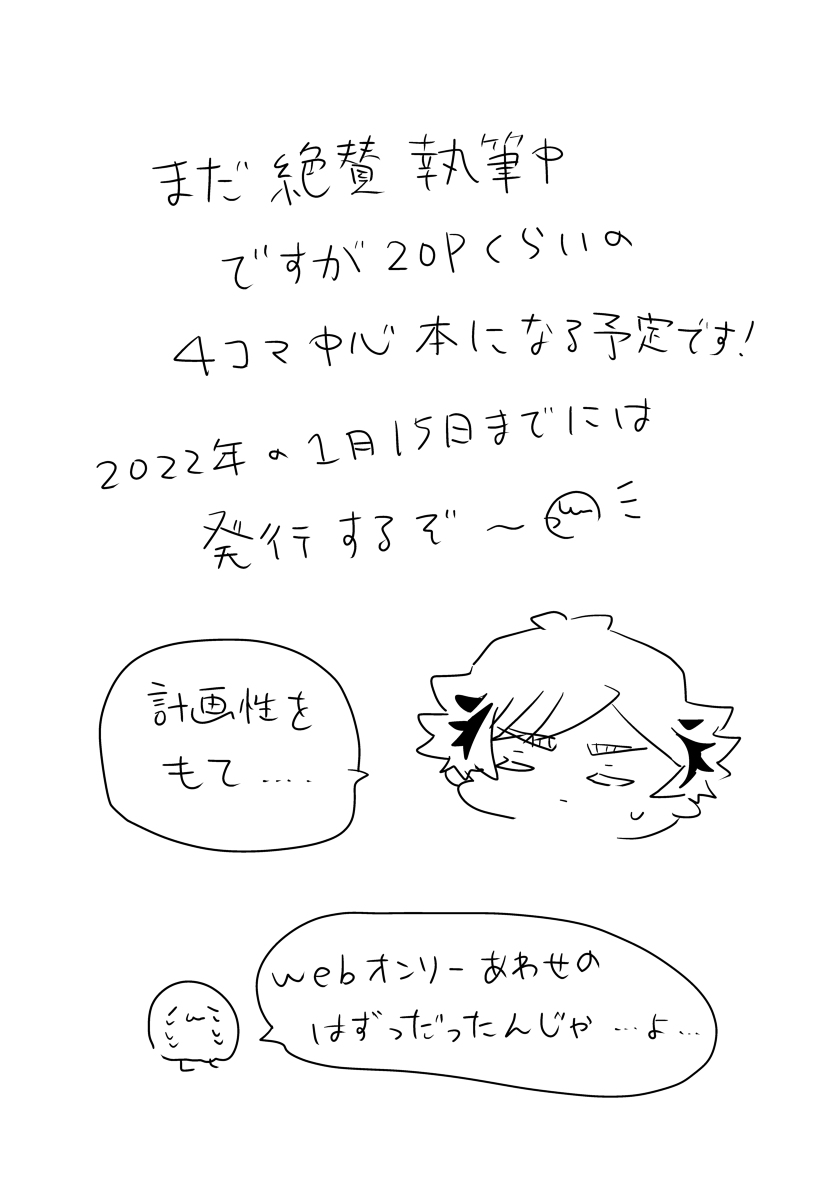 まだ絶賛執筆中
ですが20Pくらいの
4コマ中心本になる予定です!
2022年の1月15日までには
発行するぞ〜
計画性を
もて....
webオンリーあわせの
はずっだったんじゃ…よ…